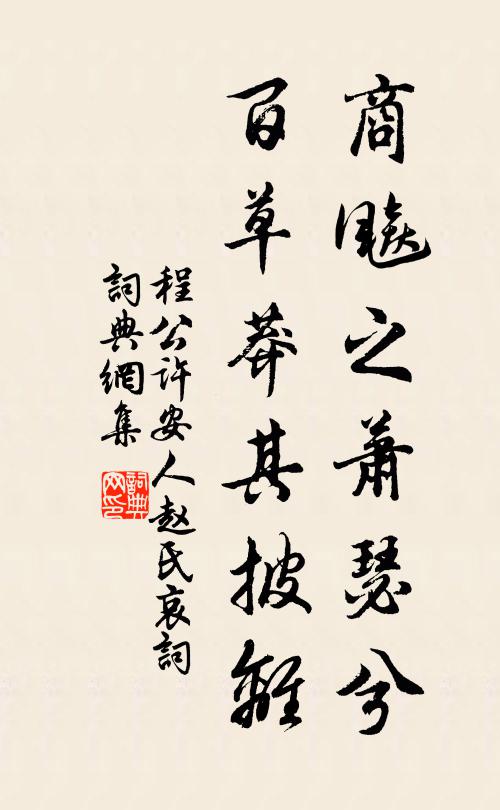 商飈之蕭瑟兮
百草莽其披離
程公许安人赵氏哀詞
詞典網集
詞典网印